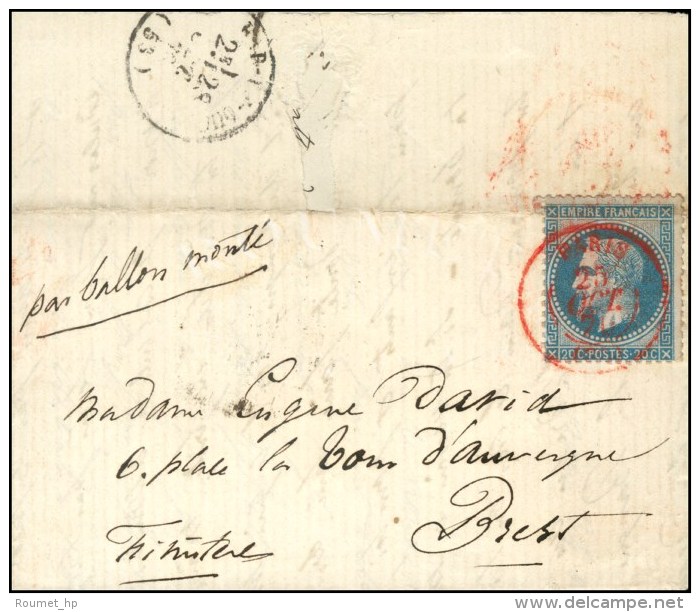 (53)
par ballon monté
EMPIRE FRANÇAIS
PARIS
25
OCT.
20C·POSTES·20C
Madame Eugène David
6. place la Tour d'auvergne
Brest
Finistère
Roumet_hp
delcampe.net